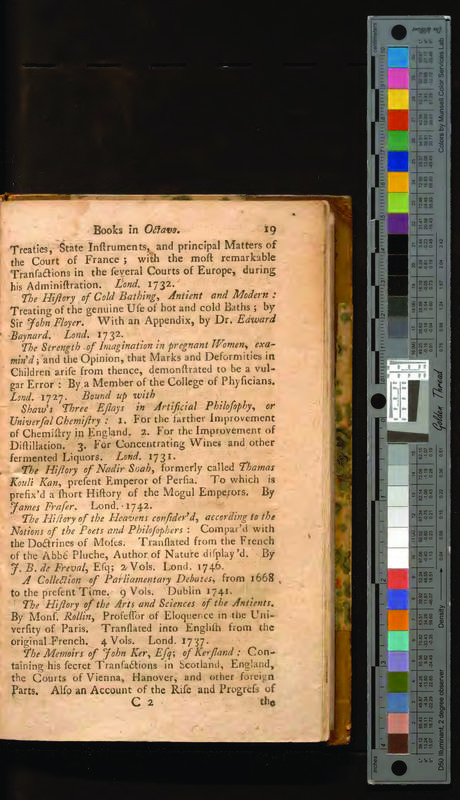 Books in Octavo. 19
Treaties, State Inſtruments, and principal Matters of
the Court of France ; with the moſt remarkable
Tranſactions in the ſeveral Courts of Europe, during
his Adminiſtration. Lond. 1732.
The Hiſtory of Cold Bathing, Antient and Modern :
Treating of the genuine Uſe of hot and cold Baths ; by
Sir John Floyer. With an Appendix, by Dr. Edward
Baynard. Lond. 1732.
The Strength of Imagination in pregnant Women, exa-
min'd ; and the Opinion, that Marks and Deformities in
Children ariſe from thence, demonſtrated to be a vul-
gar Error : By a Member of the College of Phyſicians.
Lond. 1727. Bound up with
Shaw's Three Eſſays in Artificial Philoſophy, or
Univerſal Chemiſtry : 1. For the farther Improvement
of Chemiſtry in England. 2. For the Improvement of
Diſtillation. 3. For Concentrating Wines and other
fermented Liquors. Lond. 1731.
The Hiſtory of Nadir Shah, formerly called Thamas
Kouli Kan, preſent Emperor of Perſia. To which is
prefix'd a ſhort Hiſtory of the Mogul Emperors. By
James Fraſer. Lond. 1742.
The Hiſtory of the Heavens conſider'd, according to the
Notions of the Poets and Philoſophers : Compar'd with
the Doctrines of Moſes. Tranſlated from the French
of the Abbé Pluche, Author of Nature diſplay'd. By
J. B. de Freval, Eſq; 2 Vols. Lond. 1740.
A Collection of Parliamentary Debates, from 1668
to the preſent Time. 9 Vols. Dublin 1741.
The Hiſtory of the Arts and Sciences of the Antients.
By Monſ. Rollin, Profeſſor of Eloquence in the Uni-
verſity of Paris. Tranſlated into Engliſh from the
original French. 4 Vols. Lond. 1737.
The Memoirs of John Ker, Eſq; of Kerſland : Con-
taining his ſecret Tranſactions in Scotland, England,
the Courts of Vienna, Hanover, and other foreign
Parts. Alſo an Account of the Riſe and Progreſs of
C 2 the
Colors by Munsell Color Services Lab
Golden Thread
Density
D50 Illuminant, 2 degree observer
inches